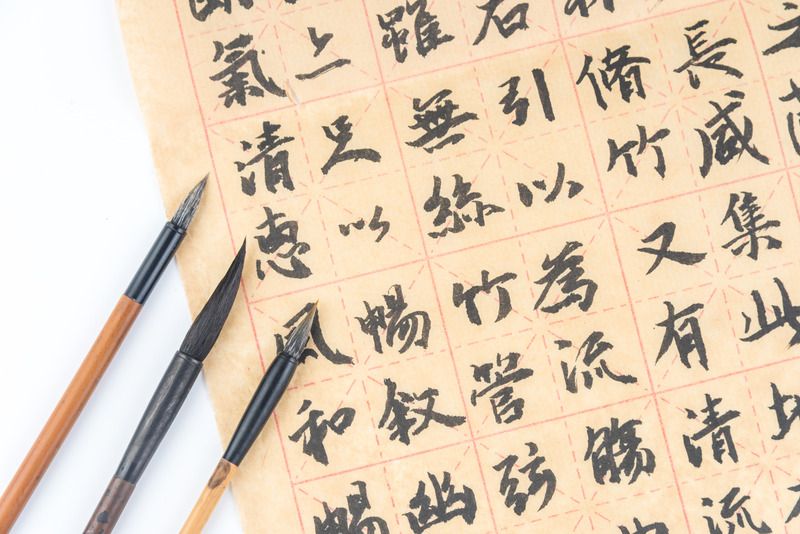 長咸集此地
脩竹又有清流
右引以為流觴
雖無絲竹管弦
足以暢敘幽
氣清惠風和暢